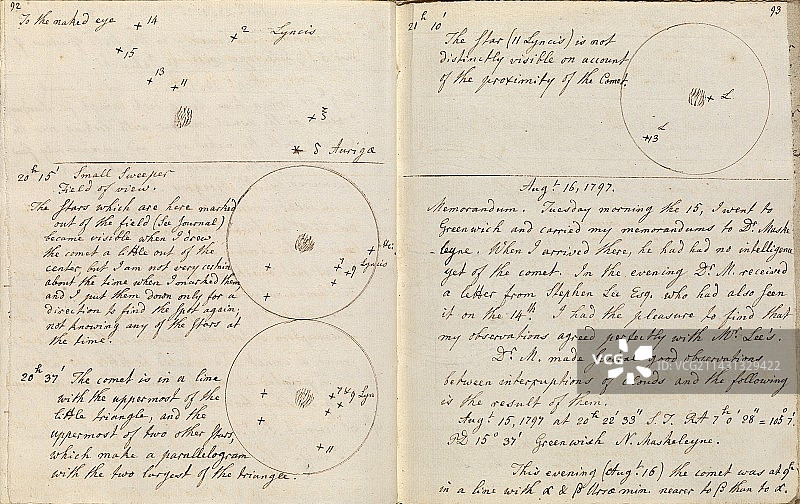 92
To the naked eye
14
2
Lyncis
15
13
11
ξ
* δ Aurigæ
20h 15' Small Sweeper
Field of view.
The Stars which are here marked
out of the field (See Journal)
became visible when I drew
the comet a little out of the
center, but I am not very certain
about the time when I marked them
and I put them down only for a
direction to find the spot again;
not knowing any of the Stars at
the time.
Lyncis
20h 37' The comet is in a line
with the uppermost of the
little triangle, and the
uppermost of two other stars,
which make a parallelogram
with the two largest of the triangle.
9 Lyn
11
93
21h 10'
The Star (11 Lyncis) is not
distinctly visible on account
of the proximity of the Comet.
L
L
13
Augt 16, 1797.
Memorandum. Tuesday morning the 15, I went to
Greenwich and carried my memorandums to Dr. Maske
-leyne. When I arrived there, he had had no intelligence
yet of the comet. In the evening Dr. M. received
a letter from Stephen Lee Esq. who had also seen
it on the 14th. I had the pleasure to find that
my observations agreed perfectly with Mr. Lee's.
Dr. M. made several good observations
between interruptions of clouds and the following
is the result of them.
Augt 15, 1797 at 20h 22' 33" S.T. RA 7h 0' 28" = 105° 7'.
PD 15° 37' Greenwich N. Maskeleyne.
This evening (Augt. 16) the comet was at
in a line with α & β Ursæ min. nearer to β than to α.
VCG
VCG.COM
ID:VCG211431329422